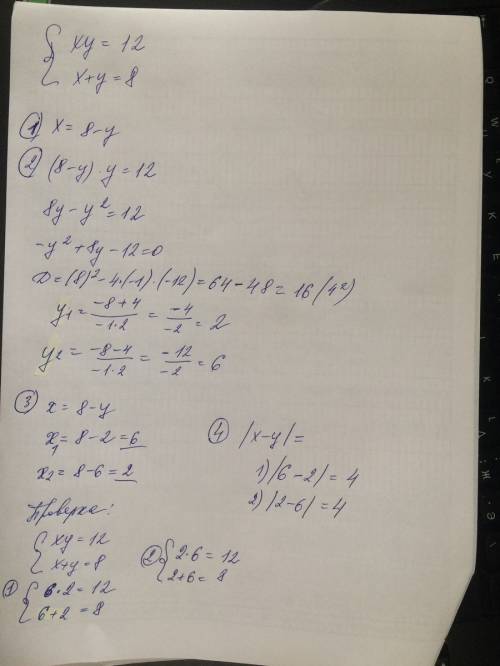 { xy = 12
{ x+y = 8
1) x = 8-y
2) (8-y)·y = 12
8y - y² = 12
-y² + 8y - 12 = 0
D = (8)² - 4·(-1)·(-12) = 64 - 48 = 16 (4²)
y₁ = (-8+4)/(-1·2) = -4/-2 = 2
y₂ = (-8-4)/(-1·2) = -12/-2 = 6
3) x = 8-y
x₁ = 8-2 = 6
x₂ = 8-6 = 2
4) |x-y| =
1) |6-2| = 4
2) |2-6| = 4
Проверка:
{ xy = 12
{ x+y = 8
1) { 6·2 = 12
{ 6+2 = 8
2) { 2·6 = 12
{ 2+6 = 8